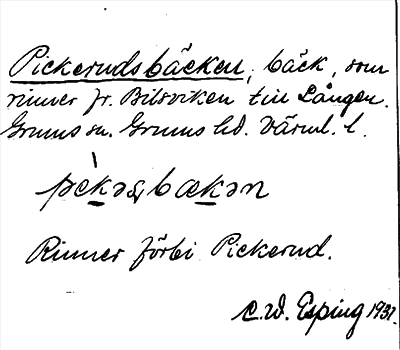 Pickerudsbäcken, bäck, som
rinner fr. Bilsviken till Lången.
Grums sn. Grums hd. Värml. l.
Rinner förbi Pickerud.
C.W. Esping 1931.